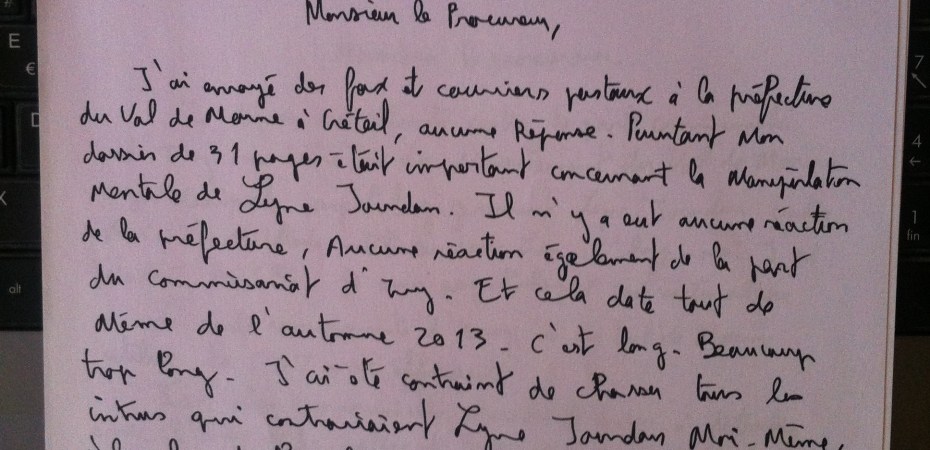 Monsieur le Procureur,
J'ai envoyé des fax et courriers postaux à la préfecture
du Val de Marne à Créteil, aucune Réponse. Pourtant Mon
dossier de 31 pages était important concernant la Manipulation
Mentale de Lyne Jourdan. Il n'y a eut aucune réaction
de la préfecture, Aucune réaction également de la part
du commissariat d'Ivry. Et cela date tout de
Même de l'automne 2013. C'est long. Beaucoup
trop long. J'ai été contraint de chasser tous les
intrus qui contrariaient Lyne Jourdan Moi-Même,
E
€
D
X
alt
7
4
←
1
fin